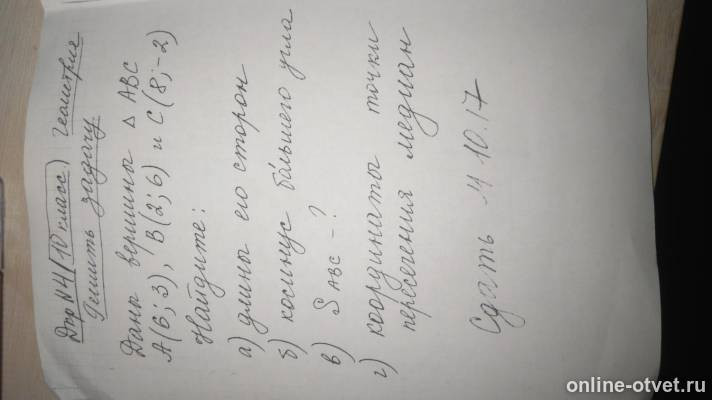 Дкр №4 (10 класс) Геометрия
Решить задачу
Даны вершины △ ABC
A(6; 3), B(2; 6) и C(8; -2)
Найдите:
а) длины его сторон
б) косинус бо́льшего угла
в) S ABC - ?
г) координаты точки
пересечения медиан
Сдать 4.10.17
online-otvet.ru